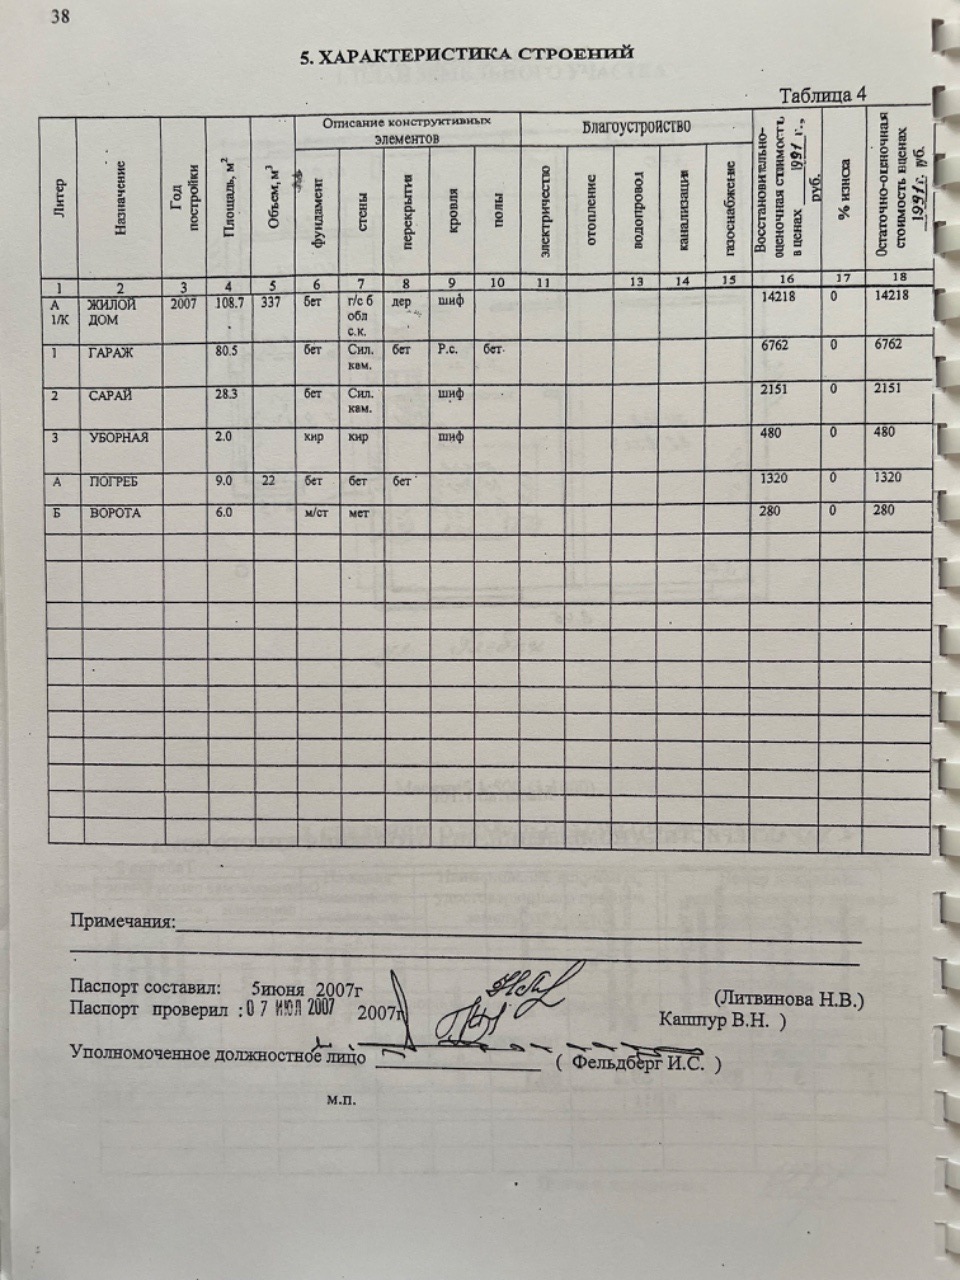 38
5. ХАРАКТЕРИСТИКА СТРОЕНИЙ
Таблица 4
Литер
Назначение
Год постройки
Площадь, м²
Объем, м³
Описание конструктивных элементов
фундамент
стены
перекрытия
кровля
полы
Благоустройство
электричество
отопление
водопровод
канализация
газоснабжение
Восстановительно-оценочная стоимость в ценах 1991 г., руб.
% износа
Остаточно-оценочная стоимость в ценах 1991 г. руб.
1 2 3 4 5 6 7 8 9 10 11 13 14 15 16 17 18
А 1/К ЖИЛОЙ ДОМ 2007 108.7 337 бет г/с б обл с.к. дер шиф 14218 0 14218
1 ГАРАЖ 80.5 бет Сил. кам. бет Р.с. бет. 6762 0 6762
2 САРАЙ 28.3 бет Сил. кам. шиф 2151 0 2151
3 УБОРНАЯ 2.0 кир кир шиф 480 0 480
А ПОГРЕБ 9.0 22 бет бет бет 1320 0 1320
Б ВОРОТА 6.0 м/ст мет 280 0 280
Примечания:
Паспорт составил: 5июня 2007г (Литвинова Н.В.)
Паспорт проверил : 07 ИЮЛ 2007 2007г Кашпур В.Н. )
Уполномоченное должностное лицо ( Фельдберг И.С. )
м.п.